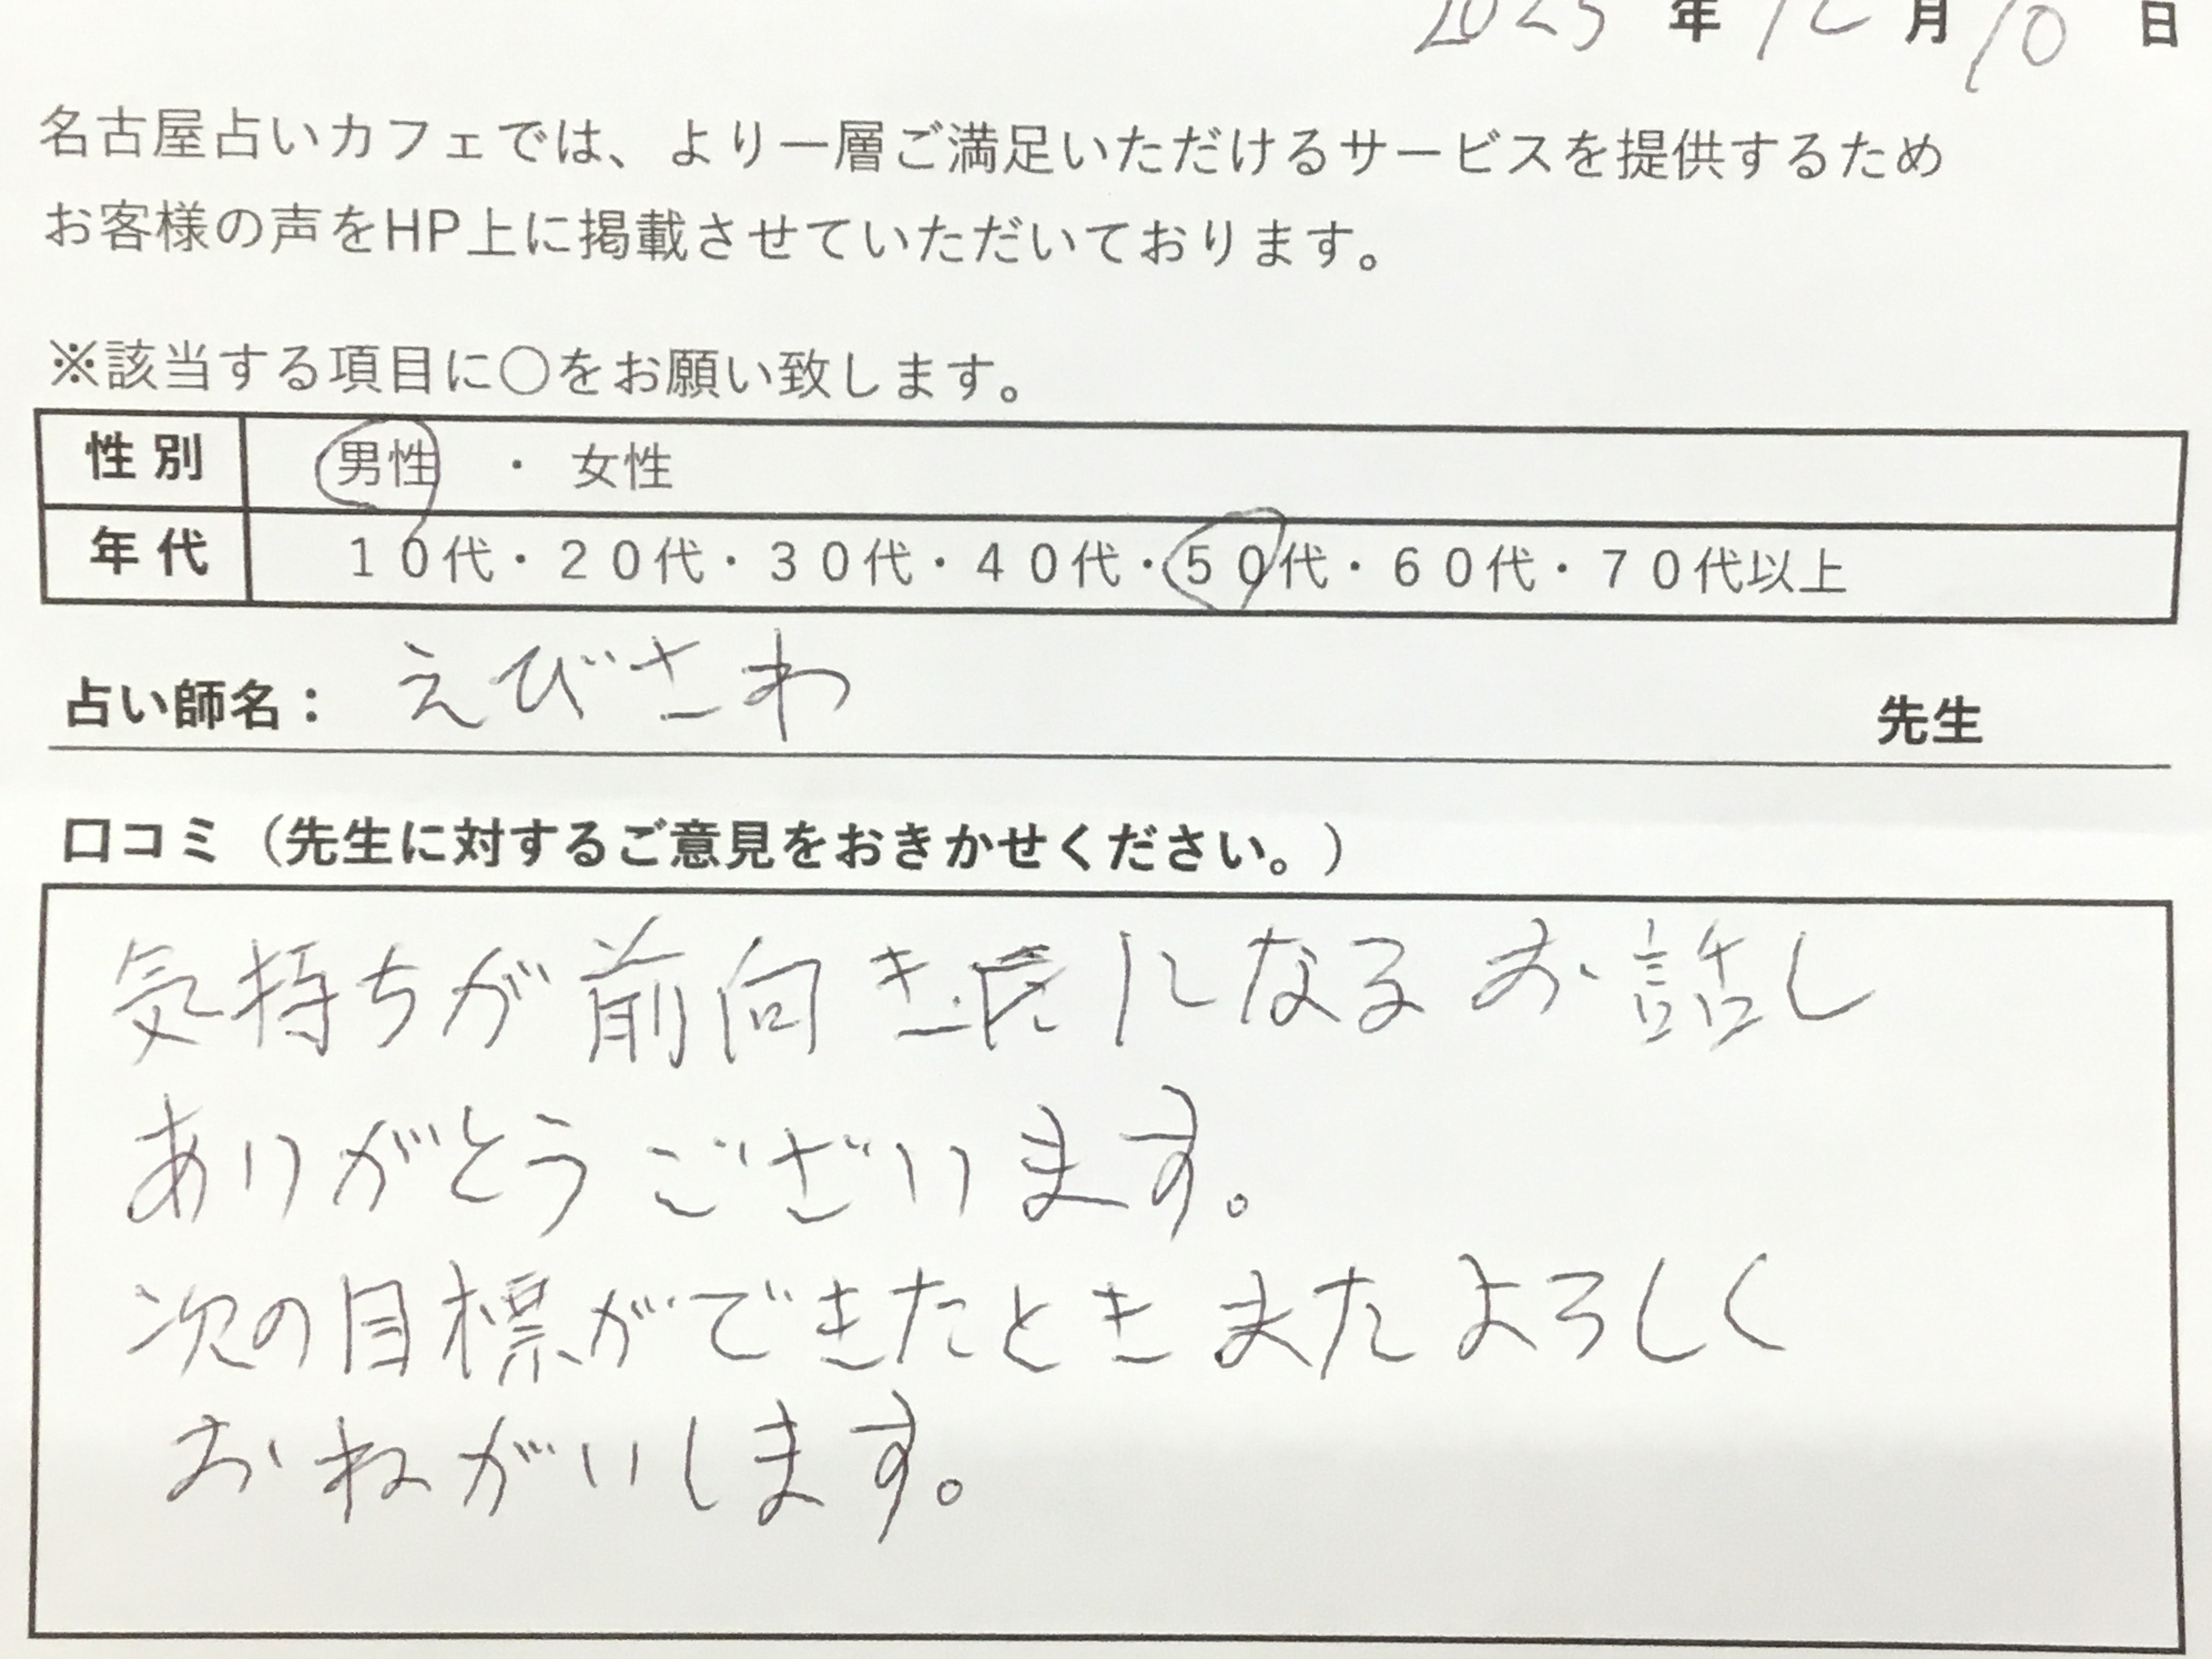 2025 年 12 月 10 日
名古屋占いカフェでは、より一層ご満足いただけるサービスを提供するため
お客様の声をHP上に掲載させていただいております。
※該当する項目に〇をお願い致します。
性別 男性 ・ 女性
年代 10代・20代・30代・40代・50代・60代・70代以上
占い師名： えびさわ 先生
口コミ（先生に対するご意見をおきかせください。）
気持ちが前向きになるお話し
ありがとうございます。
次の目標ができたときまたよろしく
おねがいします。